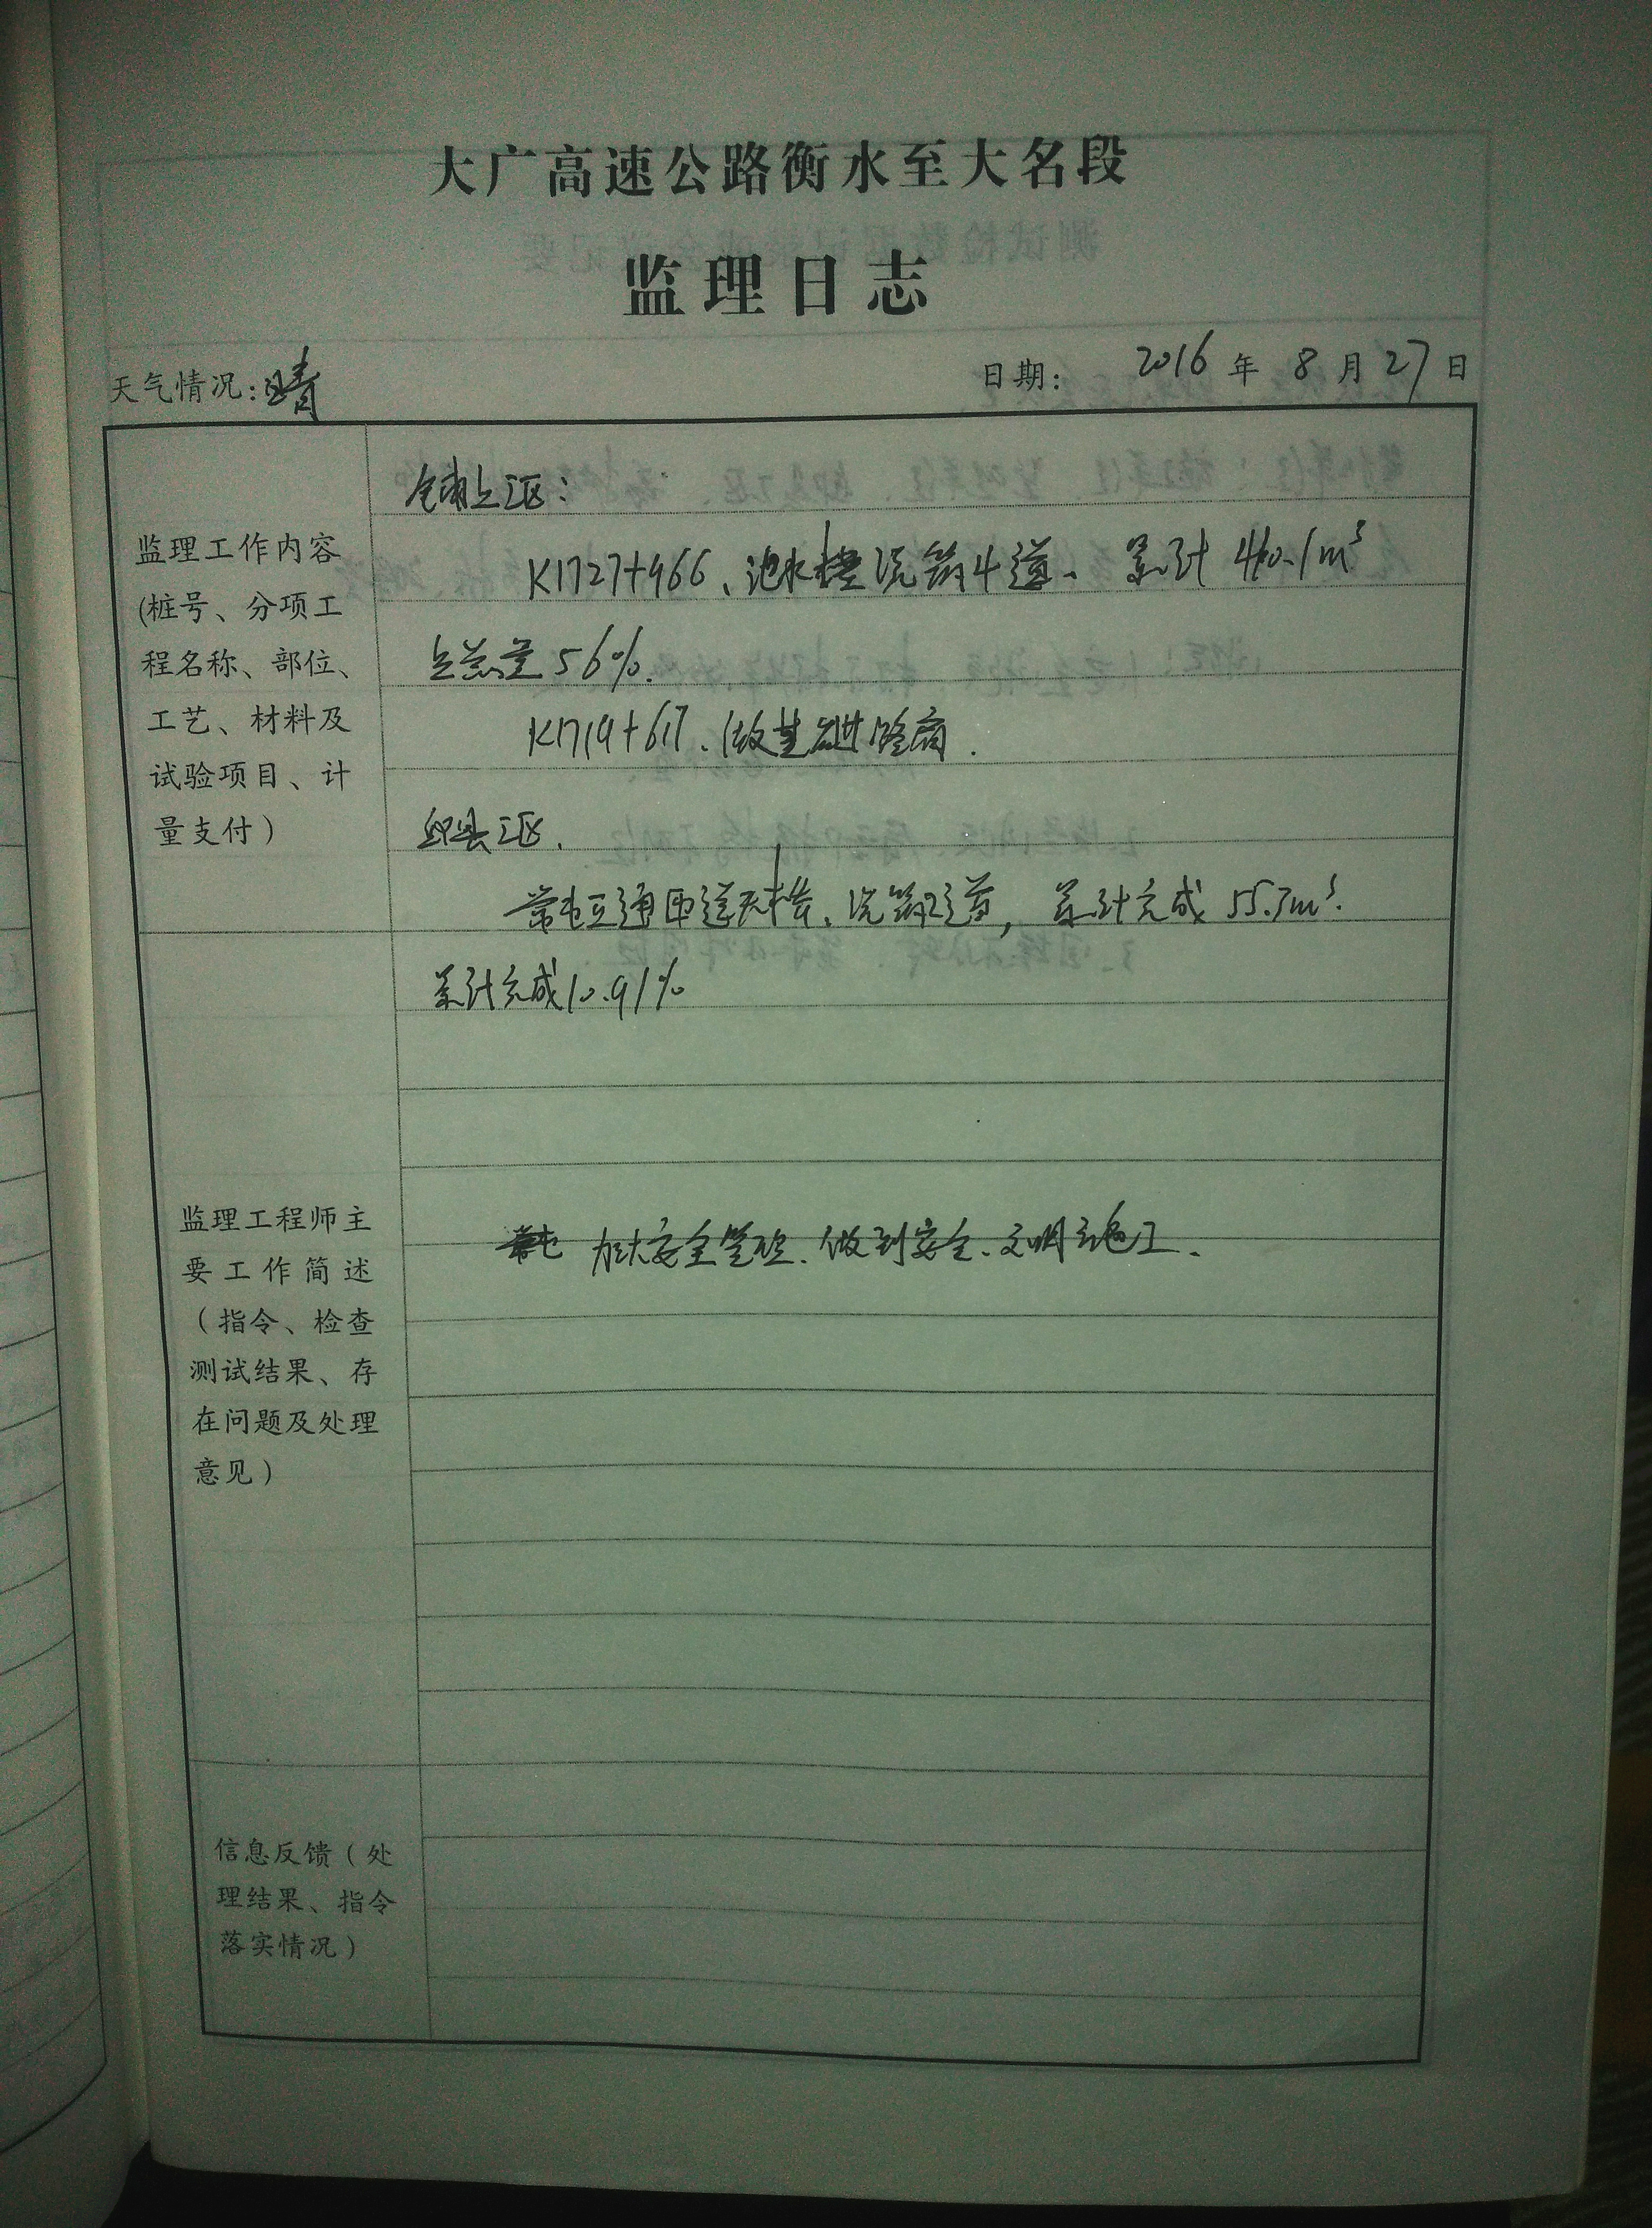 大广高速公路衡水至大名段
监理日志
天气情况:晴
日期: 2016年8月27日
监理工作内容
(桩号、分项工
程名称、部位、
工艺、材料及
试验项目、计
量支付)
工区:
K1727+966、水浇筑4道、累计460.1m³
占总量56%.
K1719+617、做基
邱县工区.
互通匝道、浇筑2道, 累计完成55.7m³.
累计完成10.91%
监理工程师主
要工作简述
(指令、检查
测试结果、存
在问题及处理
意见)
加大安全管理、做到安全、文明施工、
信息反馈(处
理结果、指令
落实情况)